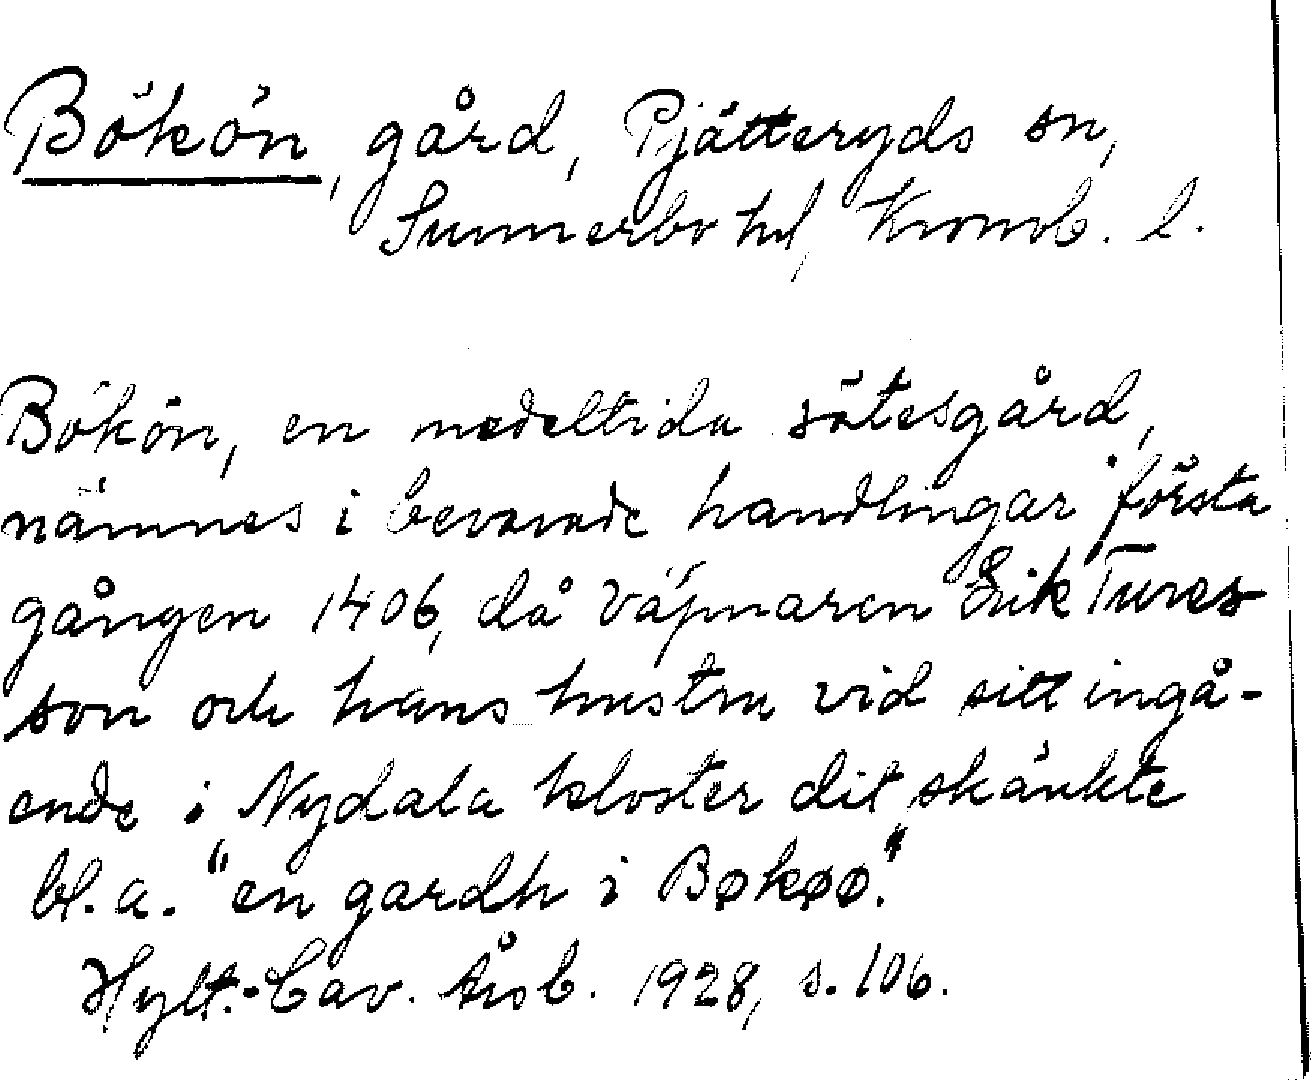 Bökön, gård, Pjätteryds sn,
Sunnerbo hd, Kronob. l.
Bökön, en medeltida sätesgård,
nämnes i bevarade handlingar första
gången 1406, då väpnaren Erik Tures
son och hans hustru vid sitt ingå-
ende i Nydala kloster dit skänkte
bl. a. "en gardh i Bøkøø."
Hylt.-Cav. Årsb. 1928, s. 106.